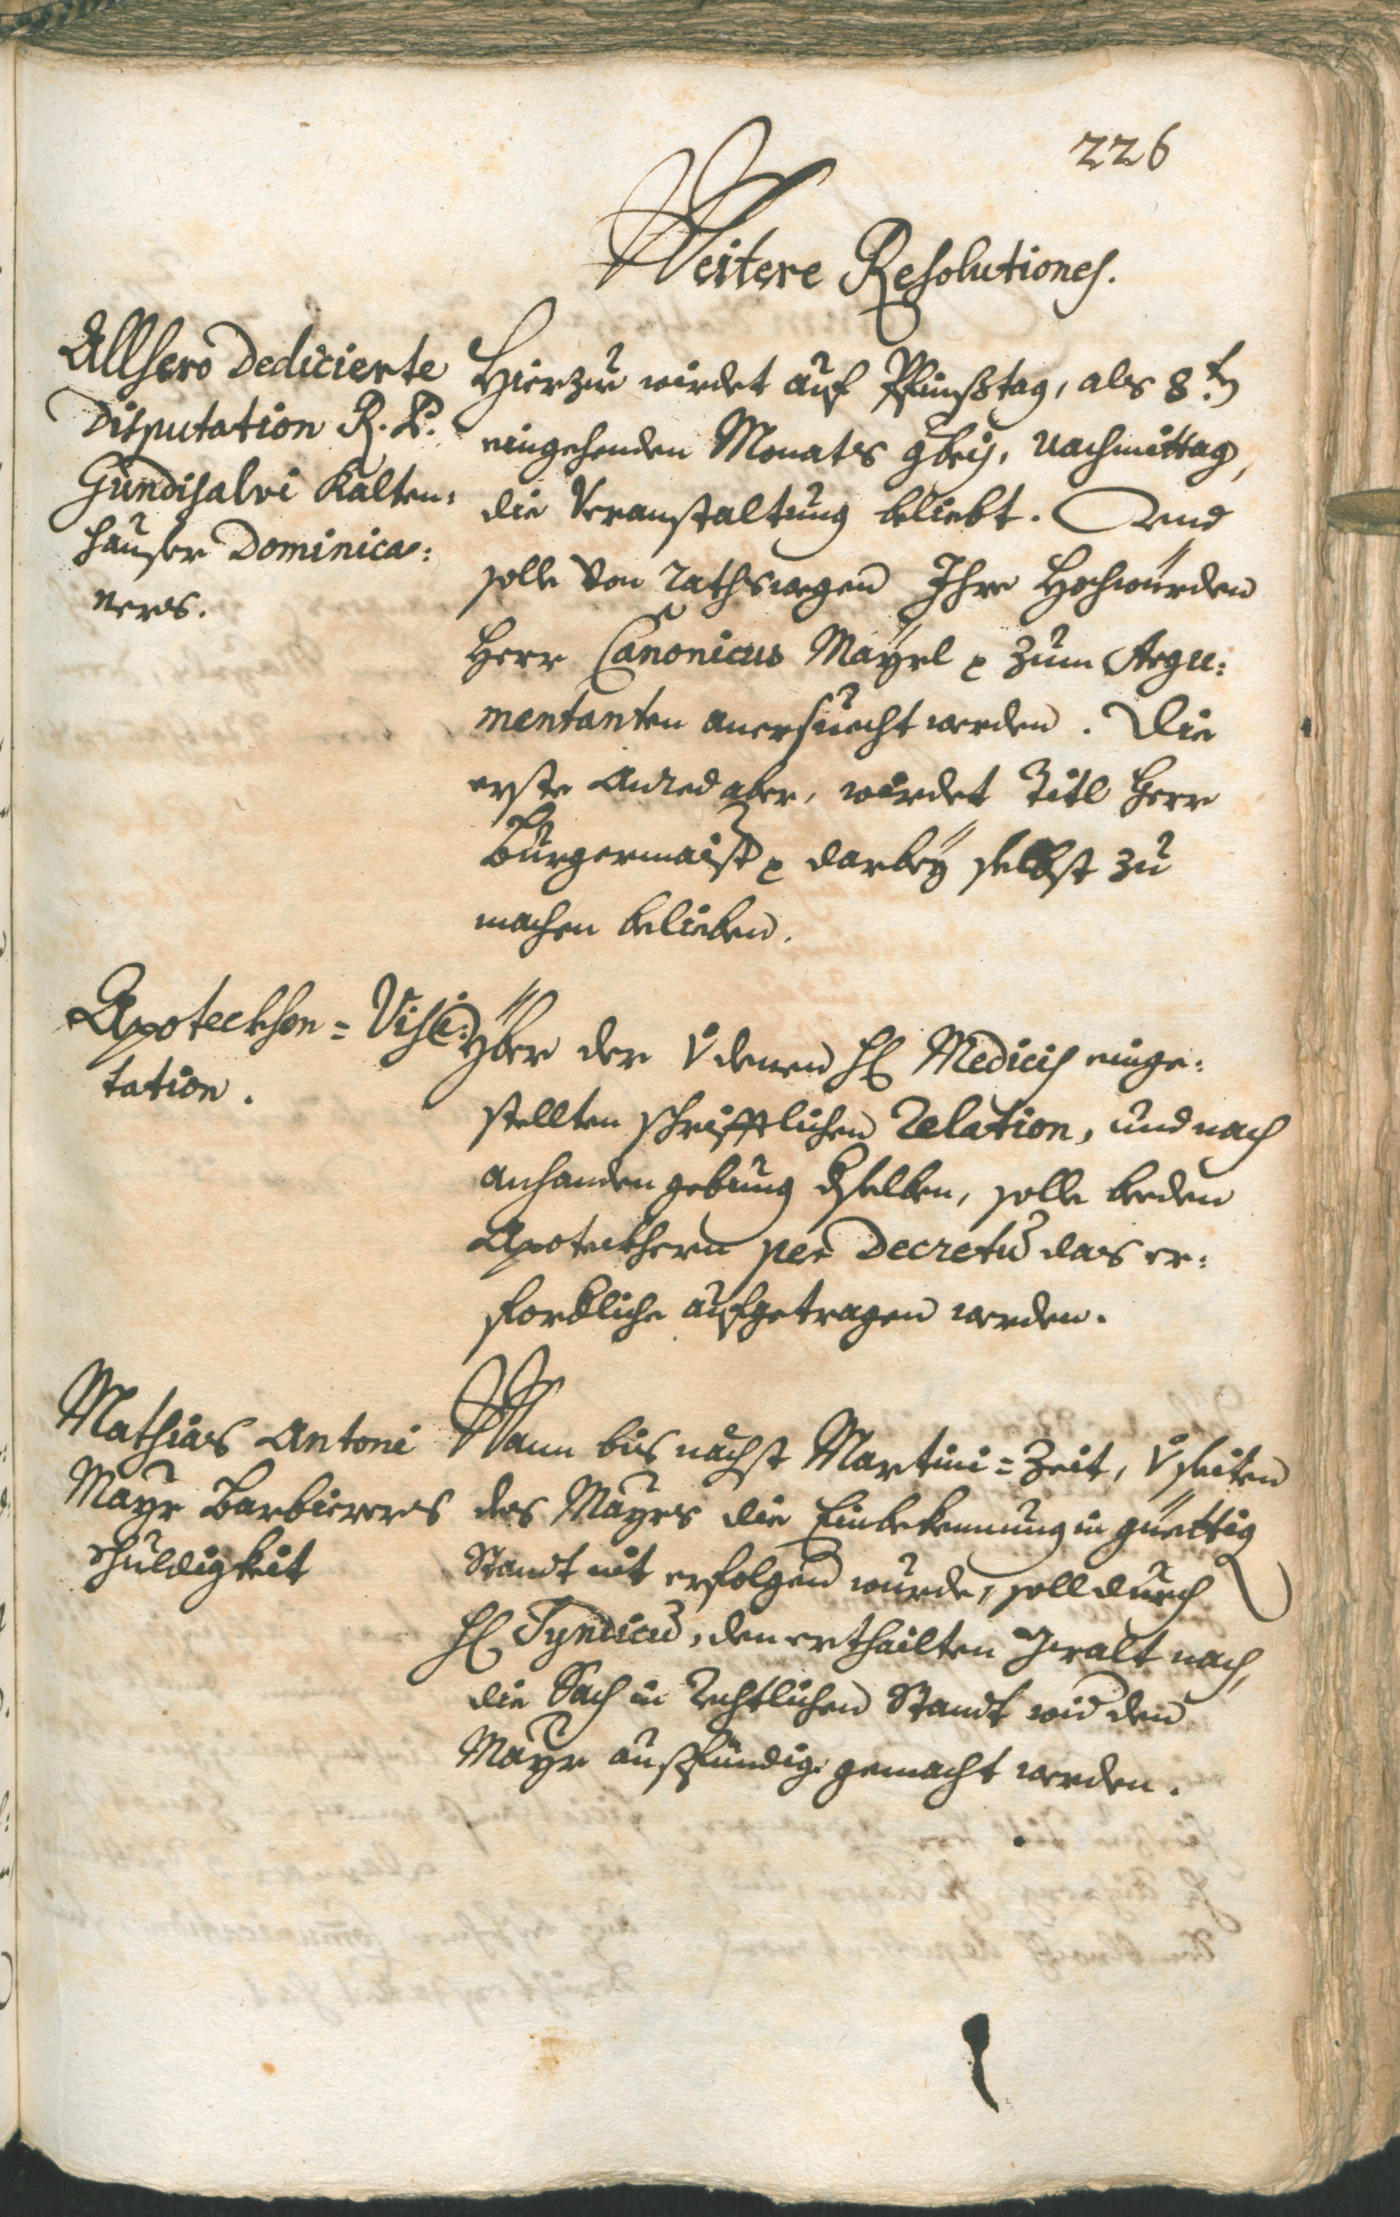 226
Weitere Resolutiones.
Allhero Dedicierte
Disputation R. P.
Gundisalvi Kalten:
hauser Dominica:
ners.
Hierzue wirdet auf Pfinßtag, als 8t.
eingehenden Monats 9bris, nachmittag,
die Veranstaltung beliebt. Und
solle von rathswegen Ihro Hochwürden
Herr Canonicus Mayrl zum Argu:
mentanten anersuecht werden. Die
erste Anred aber, wirdet Titl Herr
Burgermaistr darbey selbst zu
machen belieben.
Apoteckhen = Visi:
tation.
Yber der v denen H Medicis einge:
stellten schrifftlichen Relation, und nach
anhanden gebung dselben, solle beeden
Apoteckhern per Decretū das er:
fordliche aufgetragen werden.
Mathias Antoni
Mayr Barbierers
schuldigkeit
Wann bis nächst Martini = Zeit, v seiten
des Mayrs die Einbekennung in güettig
Standt nit erfolgen wurde, soll durch
H Syndicū, den erthailten Gwalt nach,
die Sach in Rechtlichen Standt wid den
Mayr außfündig gemacht werden.